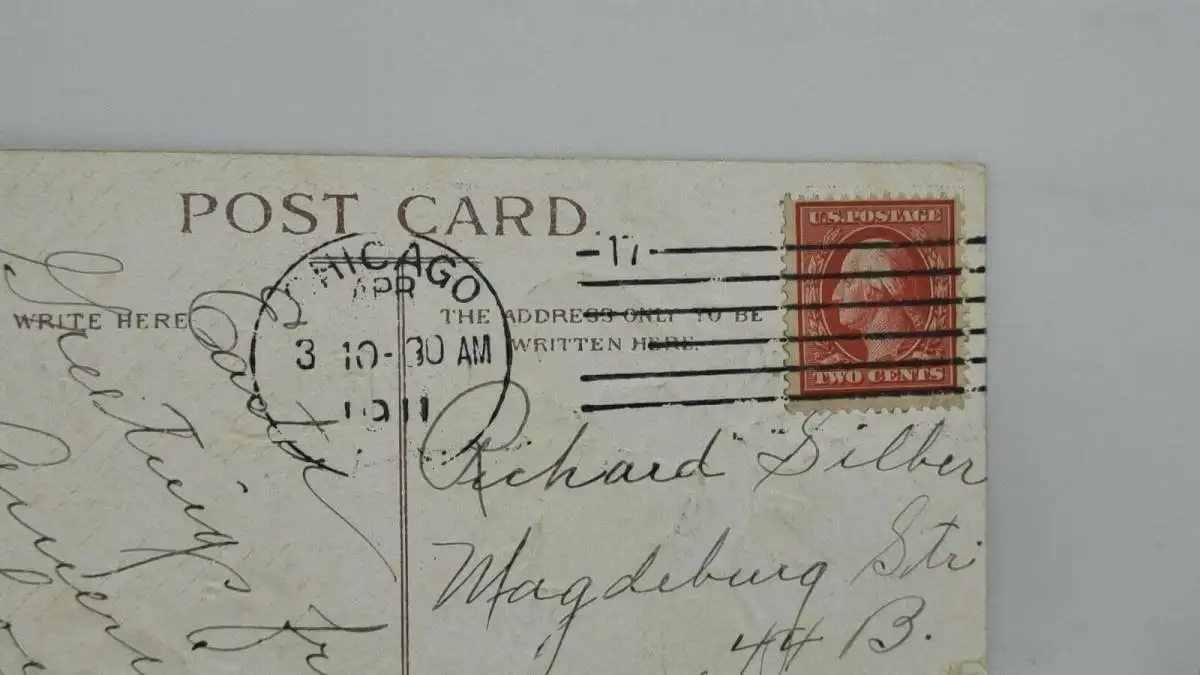 POST CARD.
WRITE HERE
Easter
Greetings
CHICAGO
APR
3 10-30 AM
1911
THE ADDRESS ONLY TO BE
WRITTEN HERE.
17
U.S. POSTAGE
TWO CENTS
Richard Silber
Magdeburg Str
44 B.